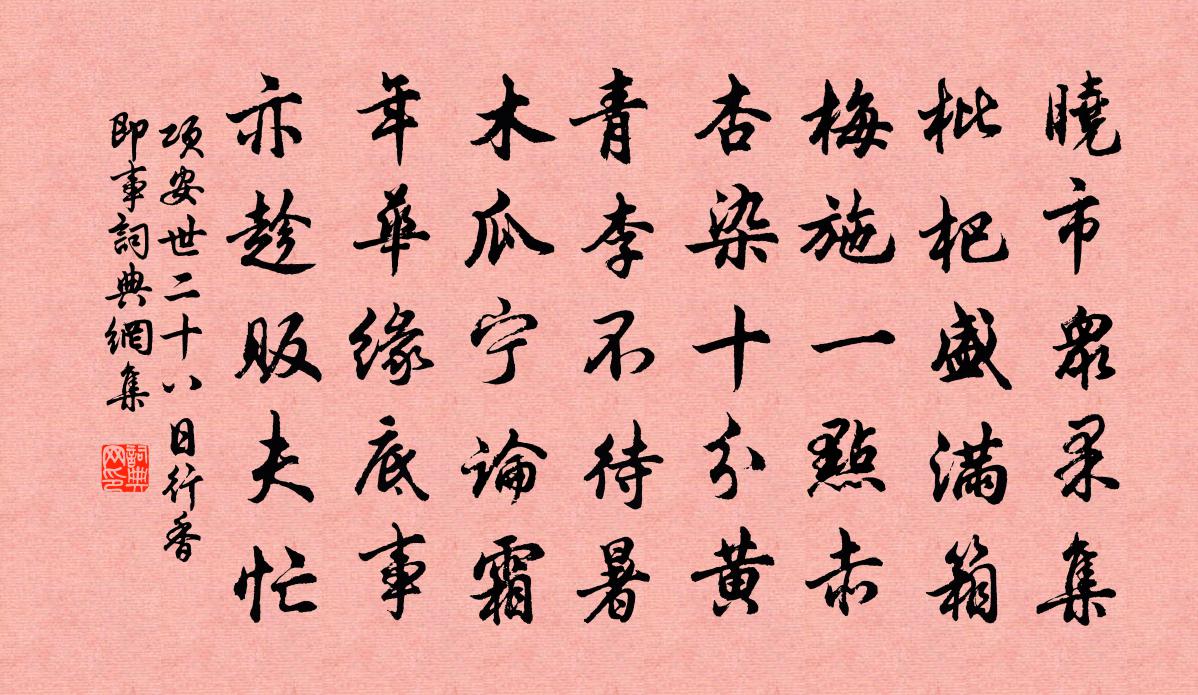 曉市眾果集
枇杷盛滿箱
梅施一點赤
杏染十分黃
青李不待暑
木瓜宁論霜
年華緣底事
亦趁販夫忙
項安世二十八日行香
即事詞典網集
詞典網印